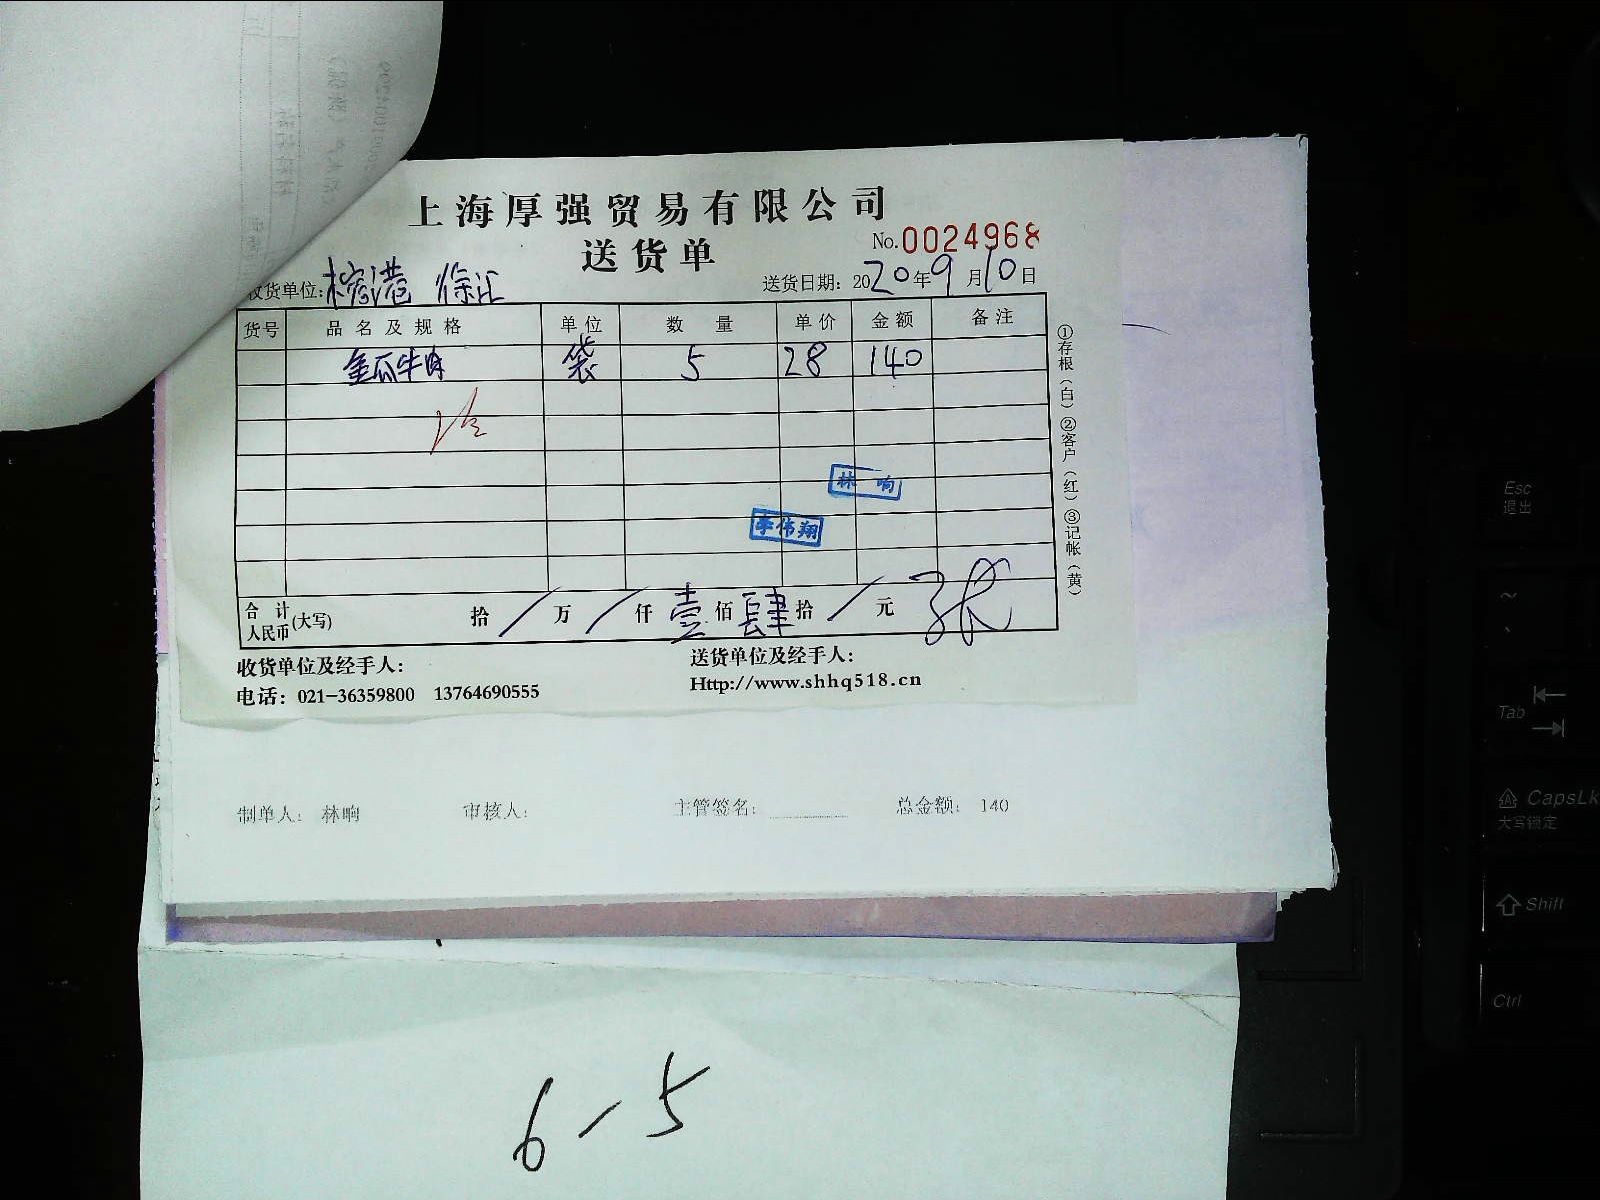 上海厚强贸易有限公司
送货单
No.0024968
收货单位: 徐汇
送货日期: 2020年9月10日
货号 品名及规格 单位 数量 单价 金额 备注
金瓜牛肉 袋 5 28 140
林响
李伟翔
合计人民币(大写) 拾/万/仟壹佰肆拾/元
①存根(白)②客户(红)③记帐(黄)
收货单位及经手人: 送货单位及经手人:
电话: 021-36359800 13764690555 Http://www.shhq518.cn
制单人: 林响 审核人: 主管签名: 总金额: 140
6-5
Esc
退出
~
Tab
CapsLk
大写锁定
Shift
Ctrl